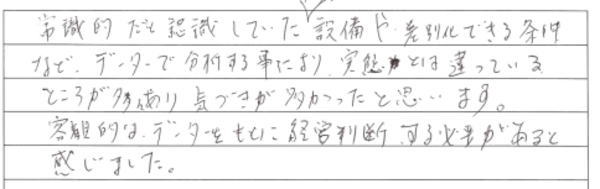 常識的だと認識していた設備や差別化できる条件
など、データーで分析する事により、実態とは違っている
ところが多々あり気づきが多かったと思います。
客観的なデーターをもとに経営判断する必要があると
感じました。